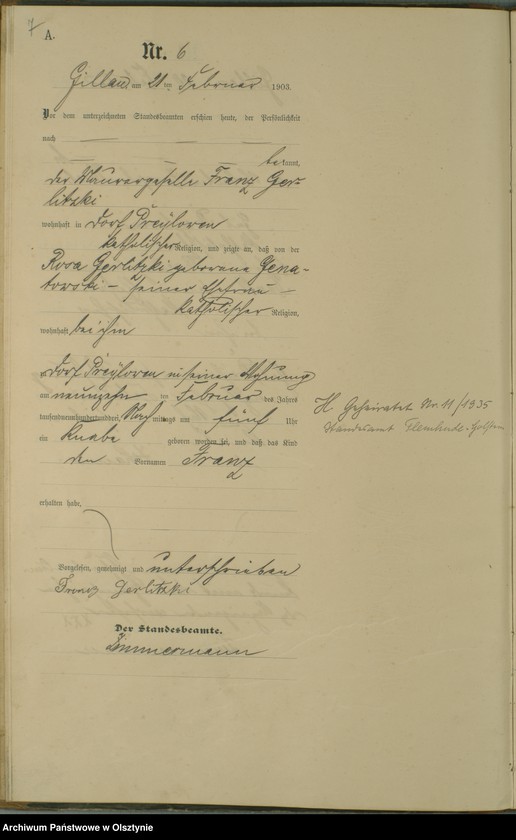 7
A.
Nr. 6
Gillau am 21 ten Februar 1903.
Vor dem unterzeichneten Standesbeamten erschien heute, der Persönlichkeit
nach
be kannt,
der Maurergeselle Franz Ger-
litzki
wohnhaft in Dorf Preylowen
katholischer Religion, und zeigte an, daß von der
Rosa Gerlitzki geborene Gena-
towski – seiner Ehefrau –
katholischer Religion,
wohnhaft bei ihm
Dorf Preylowen in seiner Wohnung
am neunzehn ten Februar des Jahres
tausendneunhundertdrei, Nach mittags um fünf Uhr
ein Knabe geboren worden sei, und daß das Kind
den Vornamen Franz
erhalten habe.
Vorgelesen, genehmigt und unterschrieben
Franz Gerlitzki
Der Standesbeamte.
Zimmermann
H. Geheiratet Nr. 11/1935
Standesamt
Archiwum Państwowe w Olsztynie